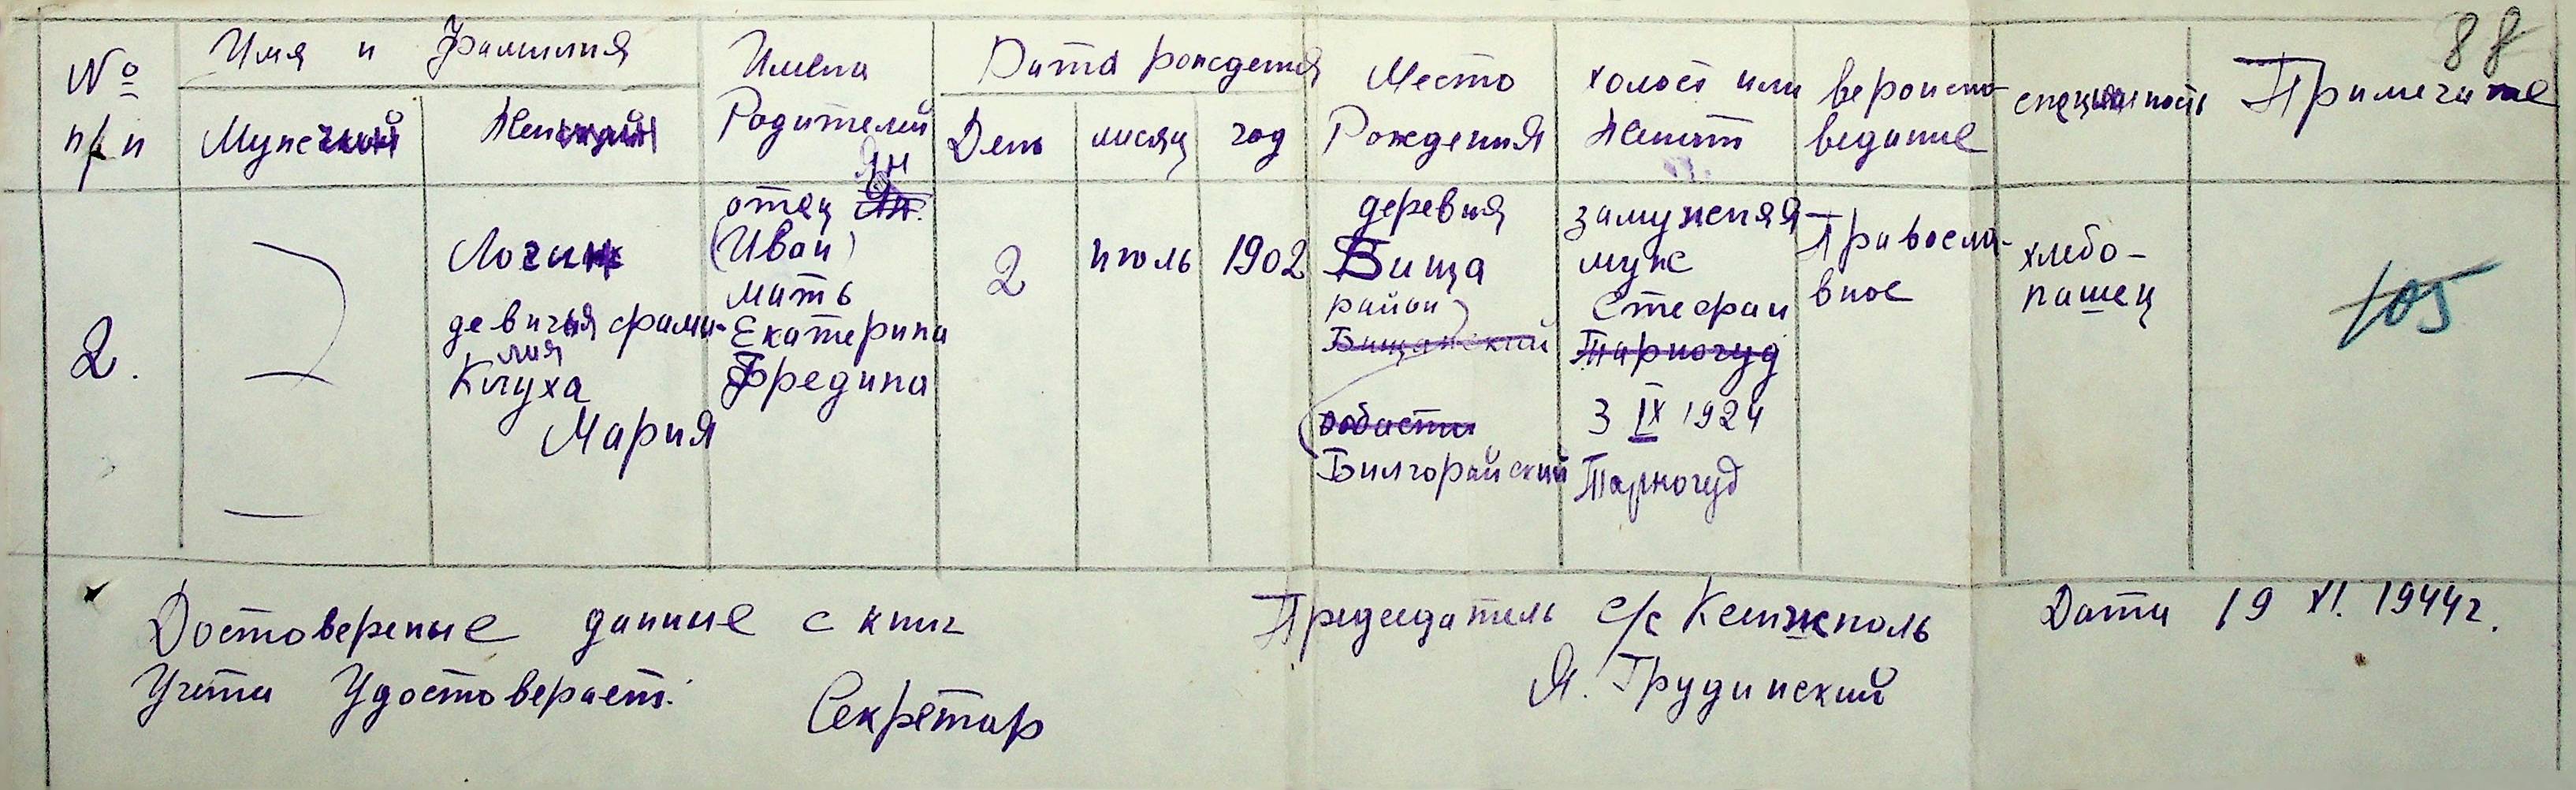 88
№ п/п
Имя и фамилия
Мужский
Женский
Имена
Родителей
Дата рождения
День
месяц
год
Место
Рождения
холост или
женат
вероиспо-
ведание
специальность
Примечание
2.
Логин
девичья фами-
лия
Клуха
Мария
Ян
отец Ян.
(Иван)
мать
Екатерина
Бредина
2
июль
1902
деревня
Бища
район
Бищанский
области
Билгорайский
замужняя
муж
Стефан
Тарногуд
3 IX 1924
Тарногуд
Правосла-
вное
хлебо-
пашец
105
Достоверные данные с книг
Учета Удостоверает:
Секретар
Председатель с/с Кенжполь
Я. Грудинский
Дата 19 XI. 1944 г.